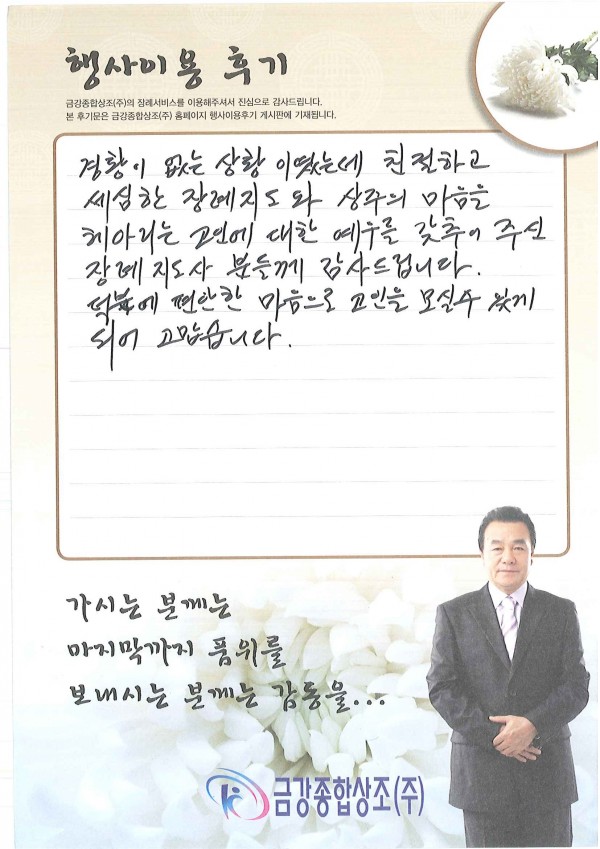 행사이용 후기
금강종합상조(주)의 장례서비스를 이용해주셔서 진심으로 감사드립니다.
본 후기문은 금강종합상조(주) 홈페이지 행사이용후기 게시판에 기재됩니다.
경황이 없는 상황 이였는데 친절하고
세심한 장례지도 와 상주의 마음을
헤아리는 고인에 대한 예우를 갖추어 주신
장례 지도사 분들께 감사드립니다.
덕분에 편안한 마음으로 고인을 모실수 있게
되어 고맙습니다.
가시는 분께는
마지막까지 품위를
보내시는 분께는 감동을...
금강종합상조(주)